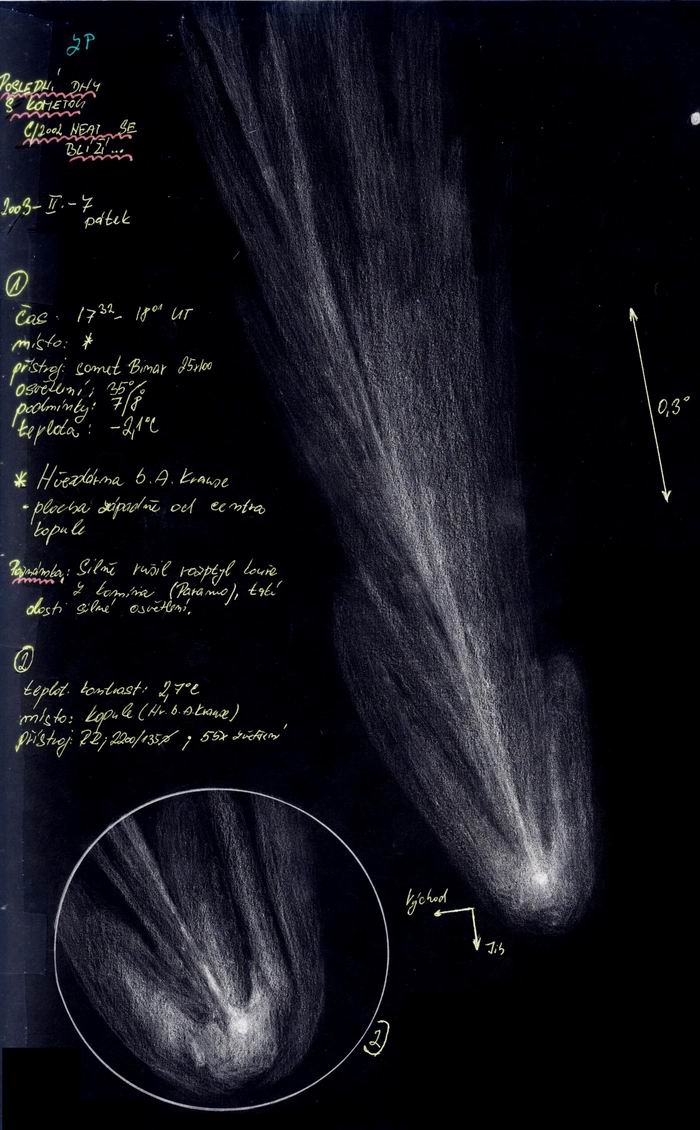 JP
POSLEDNÍ DNY
S KOMETOU
C/2002 NEAT SE
BLÍŽÍ...
2003-II.-7
pátek
①
čas: 17³² - 18⁰¹ UT
místo: *
přístroj: comet Binar 25x100
osvětlení: 35%
podmínky: 7/8
teplota: -2,1°C
* Hvězdárna b. A. Krause
- plocha západně od centra
kopule
Poznámka: Silně rušil rozptyl kouře
z komína (Paramo), také
dosti silné osvětlení.
②
teplot. kontrast: 2,7°C
místo: kopule (Hv. b. A. Krause)
přístroj: 2200/135 ; 55x zvětšení
0,3°
Východ
Jih
2